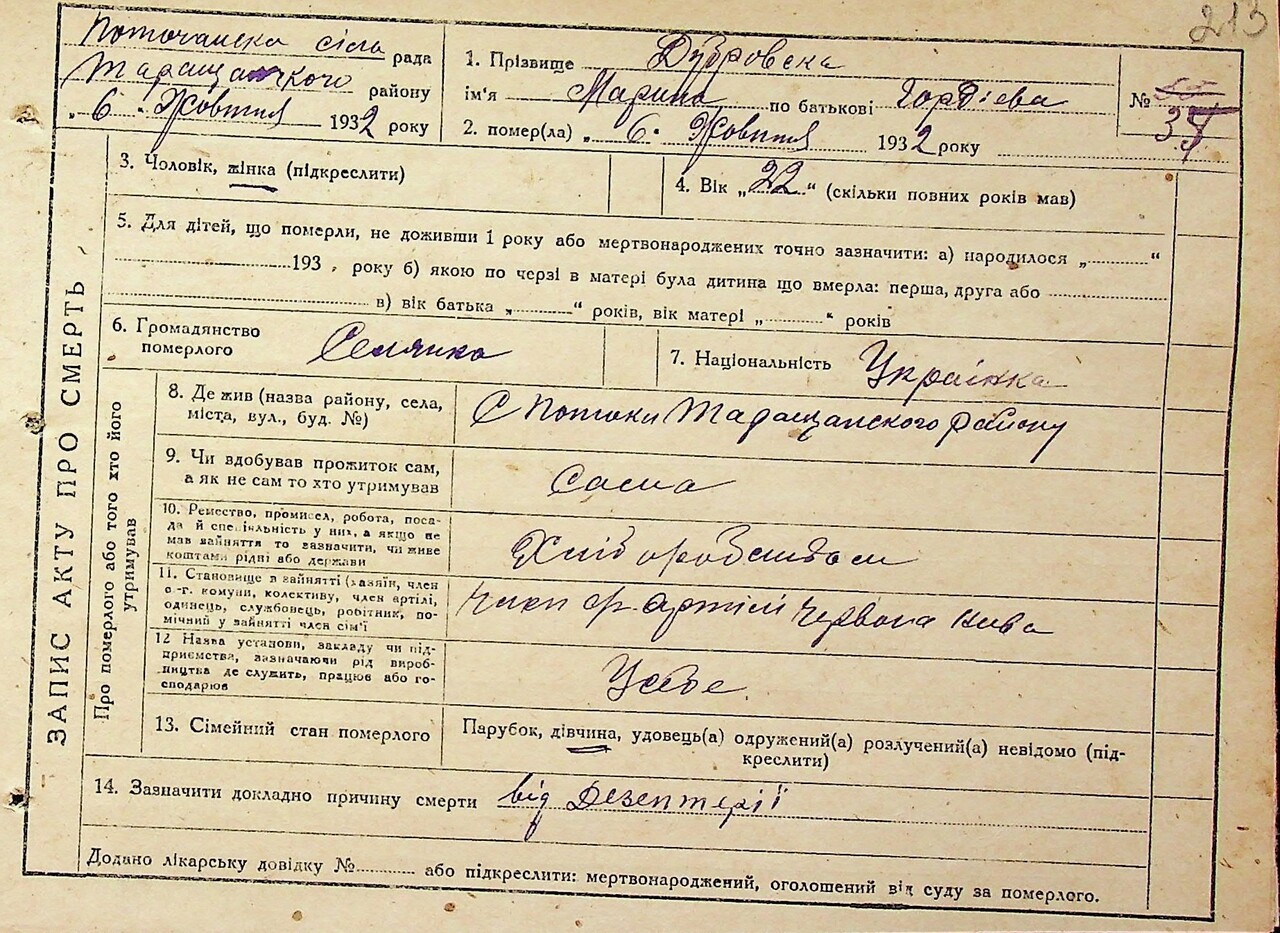 213
Поточанска сіла рада
Таращанского району
„ 6 . Жовтня 1932 року
1. Прізвище Дубровска
ім'я Марина по батькові Гордіева
2. помер(ла) „ 6. Жовтня 1932 року
№ 37
ЗАПИС АКТУ ПРО СМЕРТЬ
3. Чоловік, жінка (підкреслити)
4. Вік „ 22 “ (скільки повних років мав)
5. Для дітей, що померли, не доживши 1 року або мертвонароджених точно зазначити: а) народилося „ “
193 , року б) якою по черзі в матері була дитина що вмерла: перша, друга або
в) вік батька „ “ років, вік матері „ “ років
6. Громадянство
померлого Селянка
7. Національність Українка
Про померлого або того хто його
утримував
8. Де жив (назва району, села,
міста, вул., буд. №)
С Потоки Таращанского району
9. Чи вдобував прожиток сам,
а як не сам то хто утримував
Сама
10. Ремество, промисел, робота, поса-
да й спеціяльність у них, а якщо не
мав зайняття то зазначити, чи живе
коштами рідні або держави
11. Становище в зайнятті (хазяїн, член
с.-г. комуни, колективу, член артілі,
одинець, службовець, робітник, по-
мічний у зайнятті член сім'ї
Артілі Червона Нива
12 Назва установи, закладу чи під-
приємства, зазначаючи рід вироб-
ництва де служить, працює або го-
сподарює
У себе
13. Сімейний стан померлого
Парубок, дівчина, удовець(а) одружений(а) розлучений(а) невідомо (під-
креслити)
14. Зазначити докладно причину смерти від Дезентерії
Додано лікарську довідку № або підкреслити: мертвонароджений, оголошений від суду за померлого.